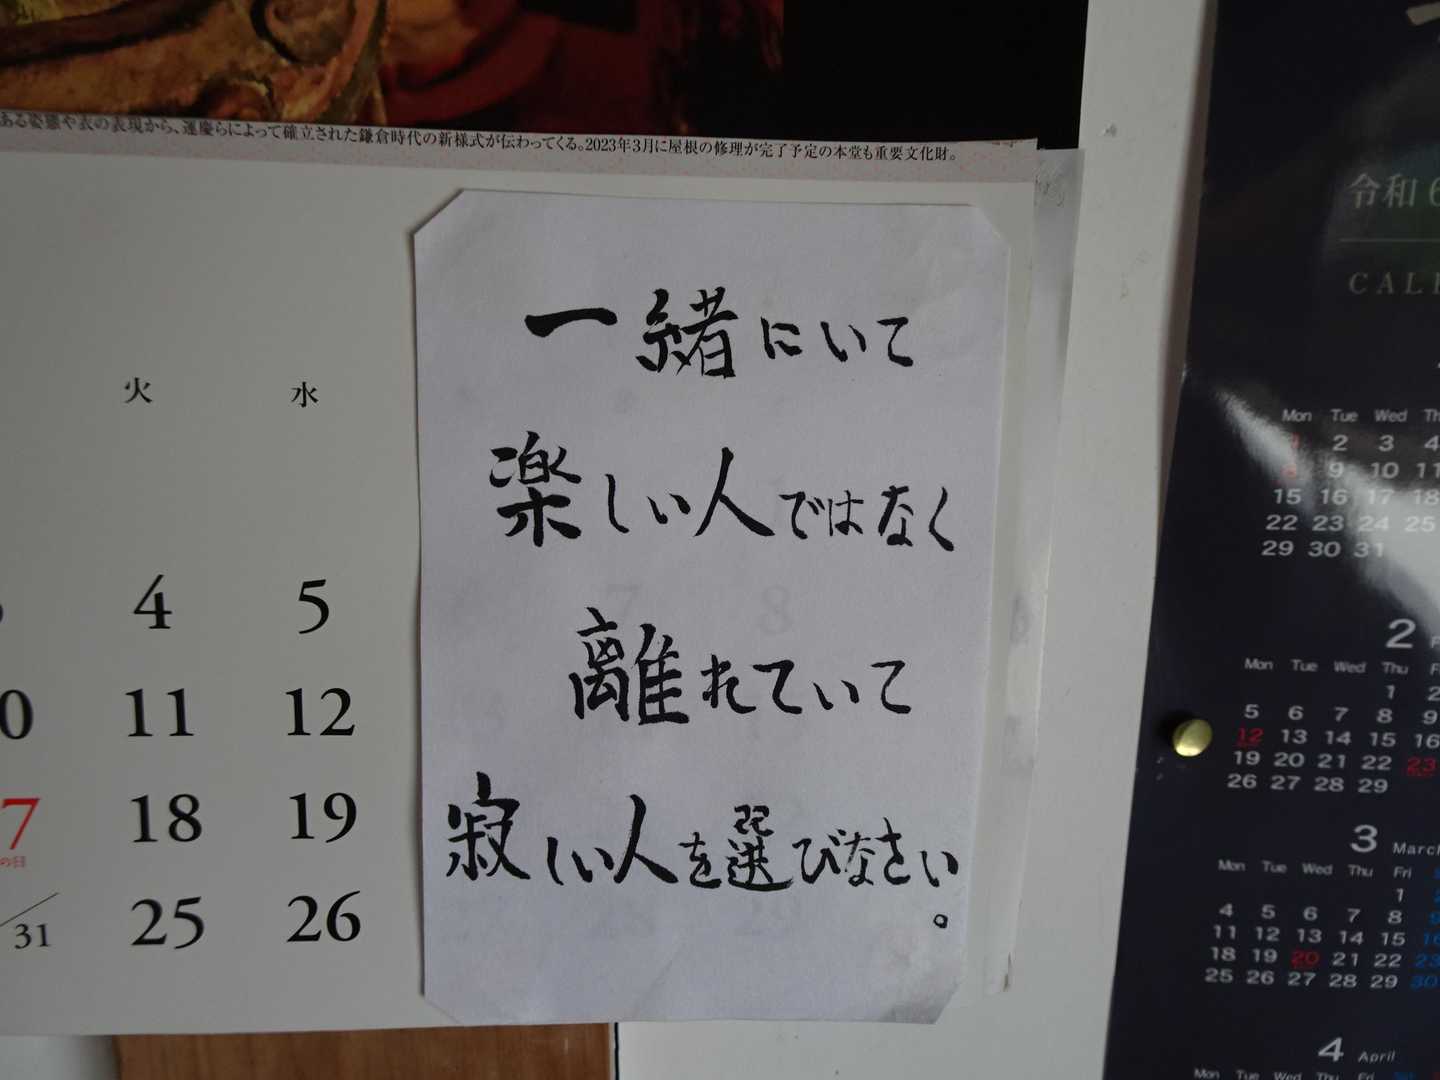 ある姿態や衣の表現から、運慶らによって確立された鎌倉時代の新様式が伝わってくる。2023年3月に屋根の修理が完了予定の本堂も重要文化財。
一緒にいて
楽しい人ではなく
離れていて
寂しい人を選びなさい。
火 水
4 5
11 12
18 19
の日
25 26
31
令和6
Mon Tue Wed
1 2 3 4
8 9 10 11
15 16 17 18
22 23 24 25
29 30 31
2
Mon Tue Wed Thu
1 2
5 6 7 8 9
12 13 14 15 16
19 20 21 22 23
26 27 28 29
3 March
Mon Tue Wed Thu Fri
1
4 5 6 7 8
11 12 13 14 15 16
18 19 20 21 22 23
25 26 27 28 29 30
4 April
Mon Tue Wed Thu Fri